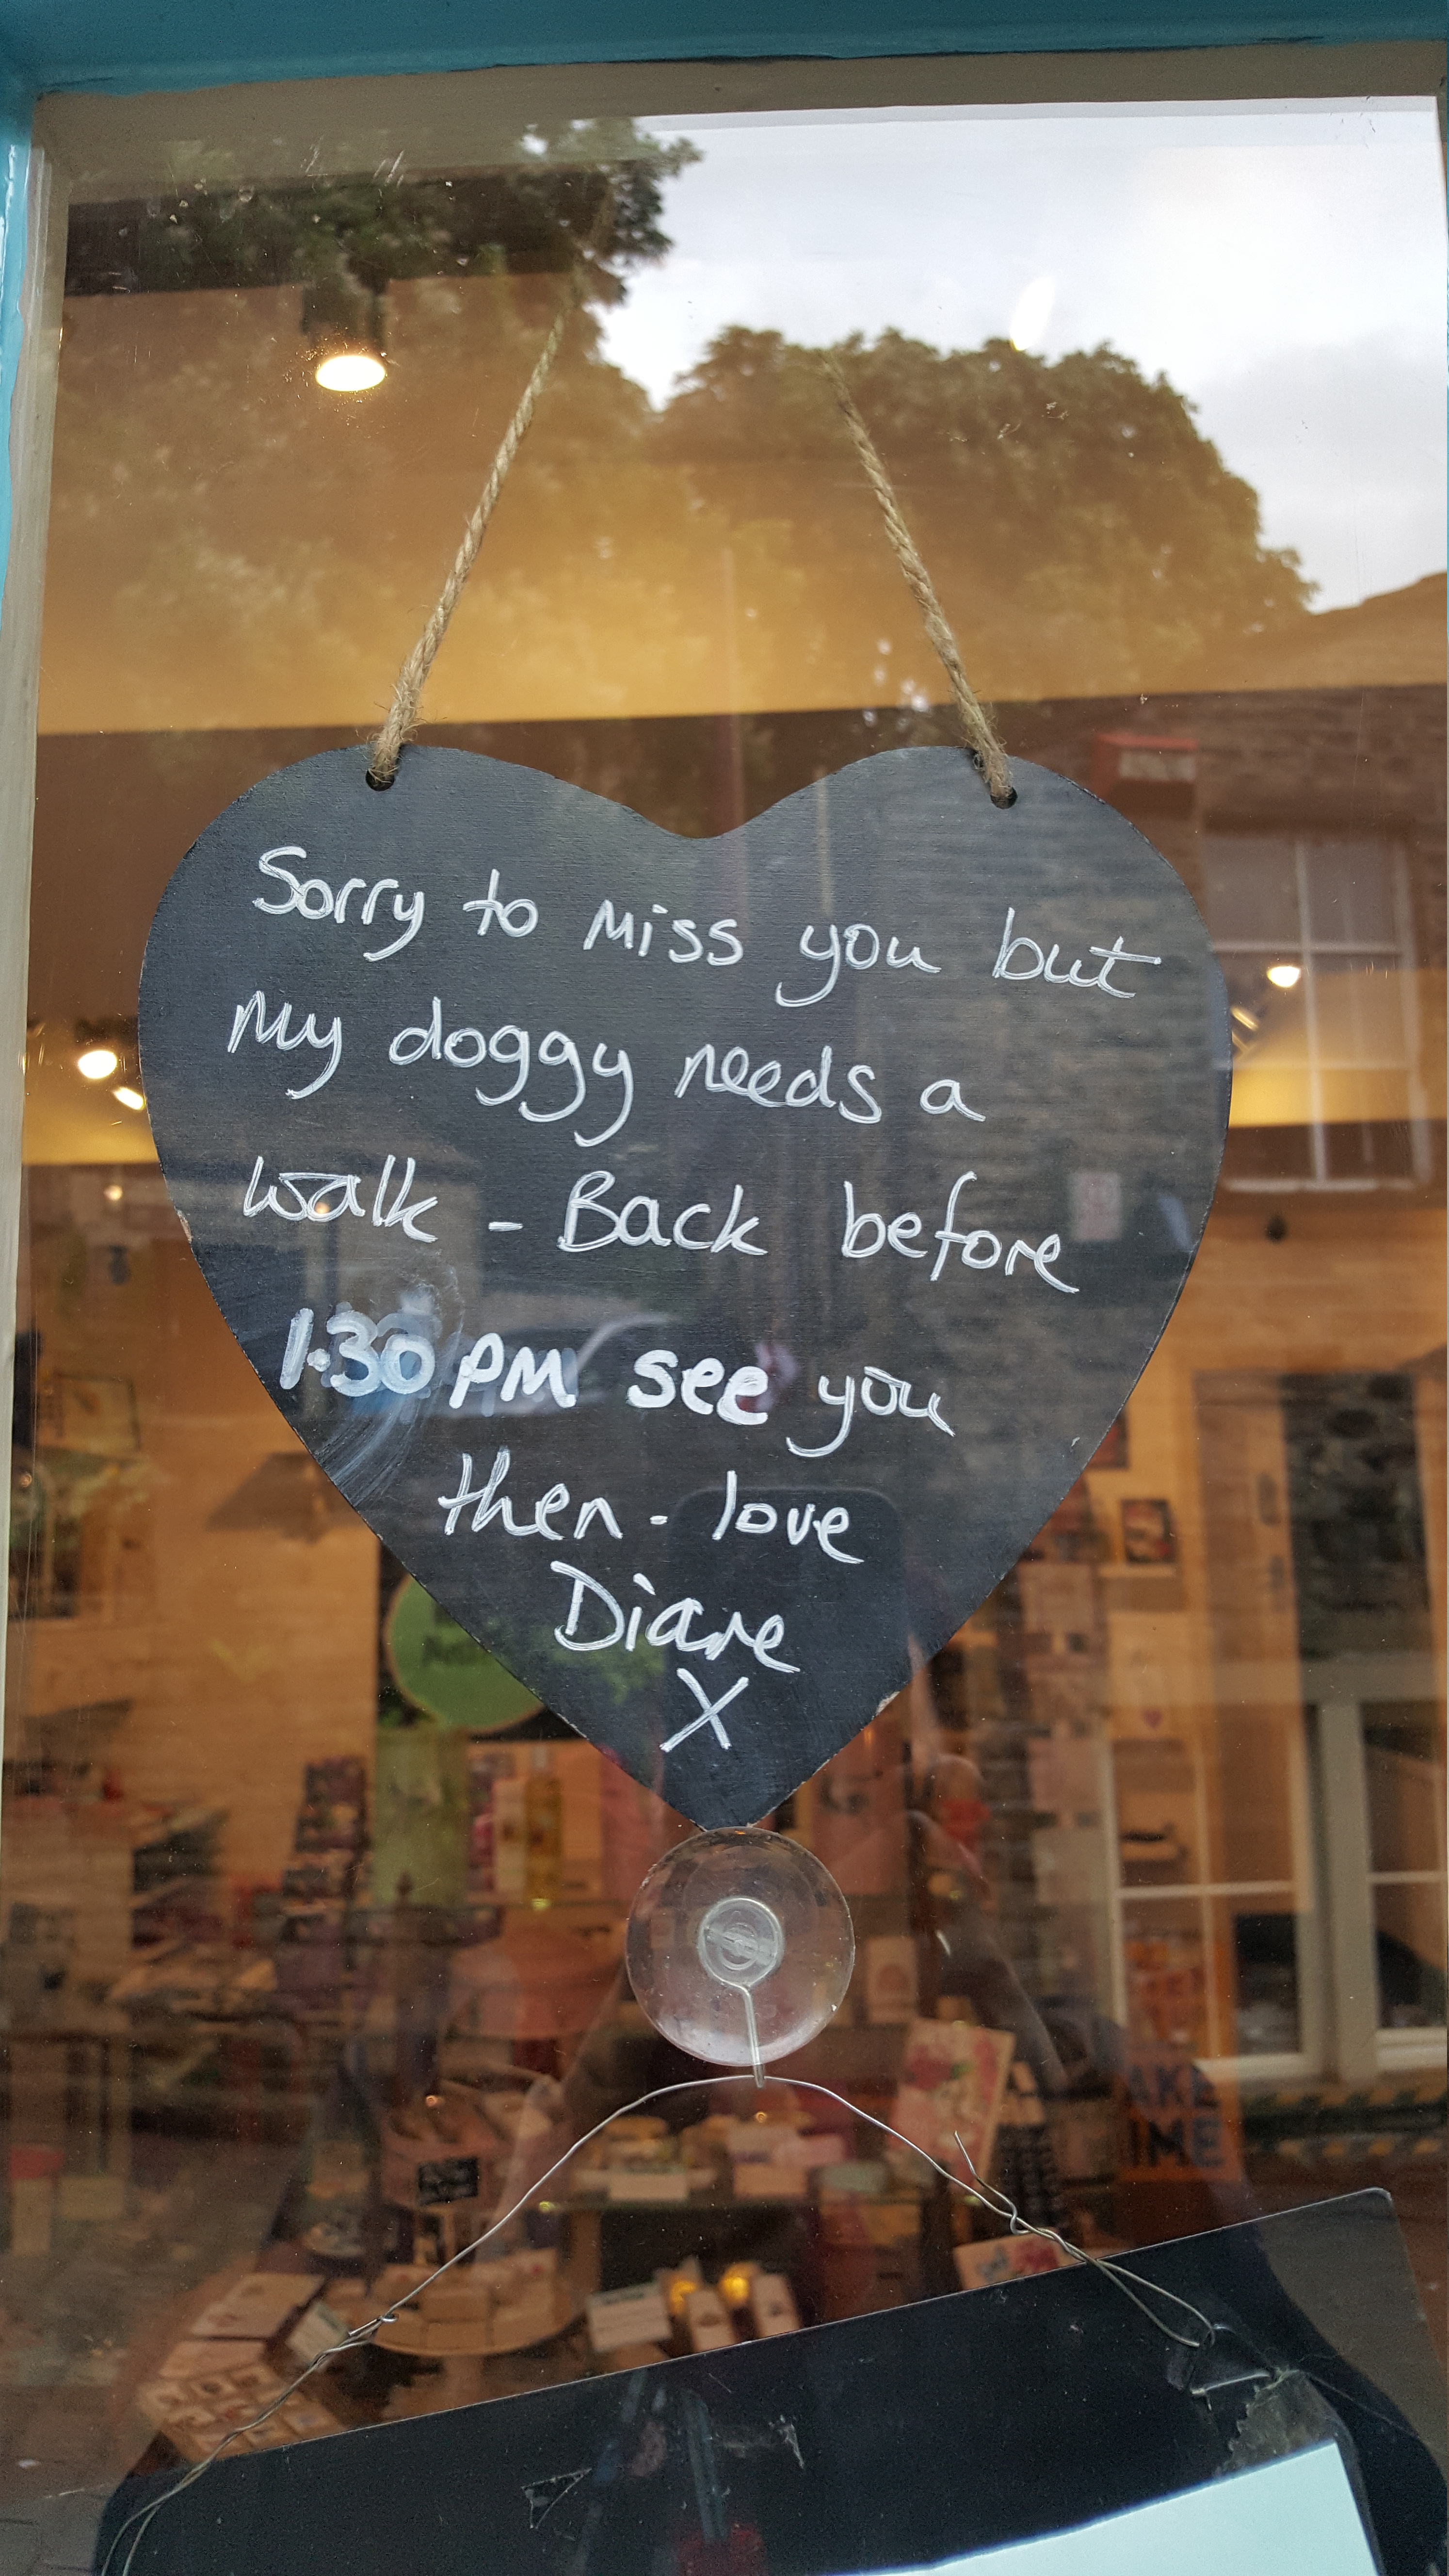 Sorry to miss you but
my doggy needs a
walk - Back before
1.30 PM see you
then - love
Diane
X